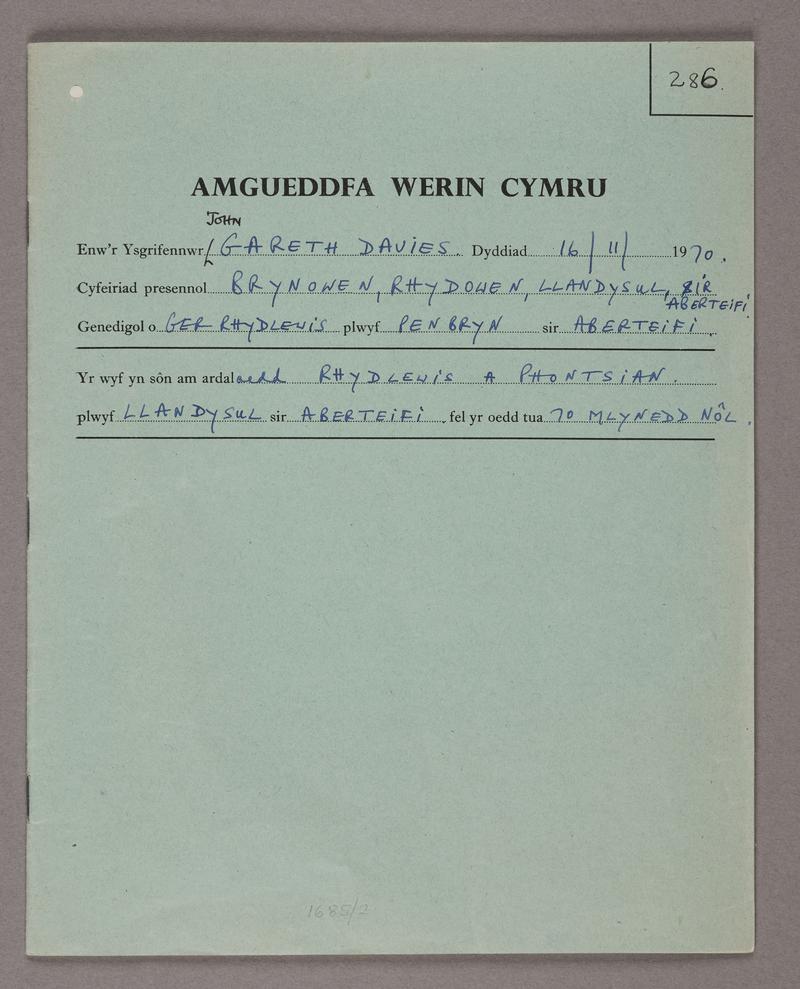 286.
AMGUEDDFA WERIN CYMRU
JOHN
Enw'r Ysgrifennwr GARETH DAVIES. Dyddiad 16/11/ 1970.
Cyfeiriad presennol BRYNOWEN, RHYDOWEN, LLANDYSUL, SIR
ABERTEIFI
Genedigol o GER RHYDLEWIS plwyf PENBRYN sir ABERTEIFI.
Yr wyf yn sôn am ardaloedd RHYDLEWIS A PHONTSIAN.
plwyf LLANDYSUL sir ABERTEIFI, fel yr oedd tua 70 MLYNEDD NÔL.
1685/2